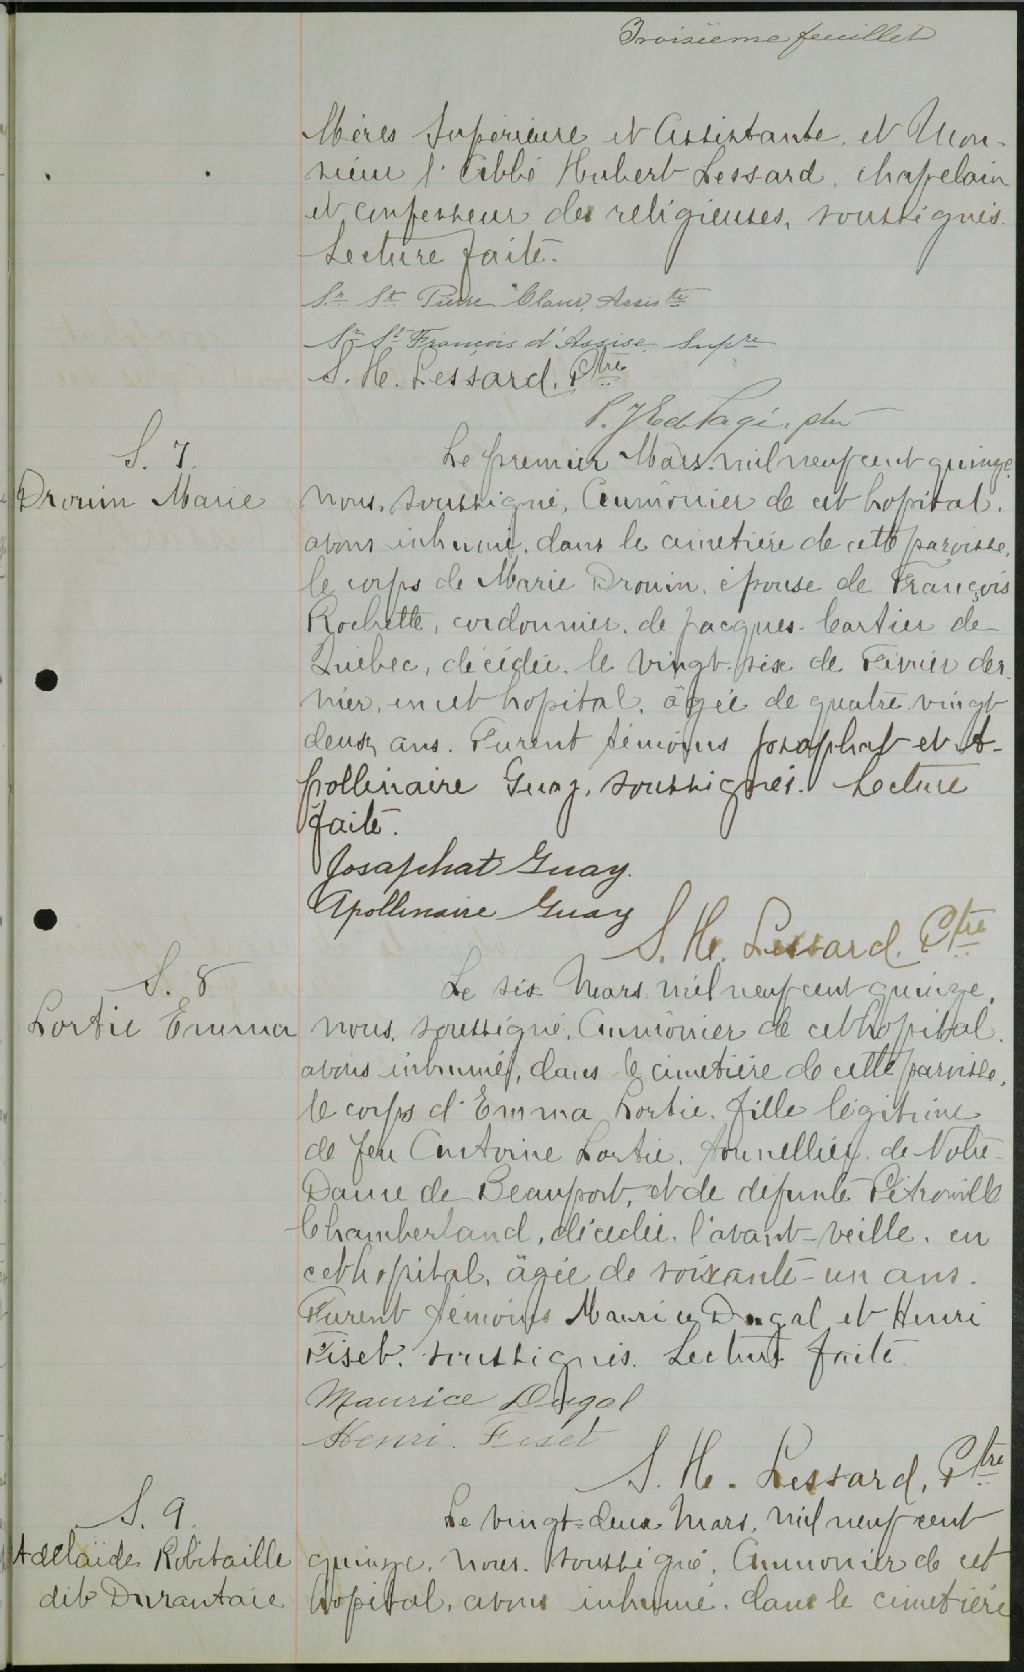 Troisième feuillet
Mères Supérieure et Assistante, et Mon-
sieur l'Abbé Hubert Lessard, chapelain
et confesseur des religieuses, soussignés.
Lecture faite.
Sr. St. Pierre Claver, Assiste
Sr. St. François d'Assise, Supre
S. H. Lessard, Ptre
P. J. Ed. Pagé, ptre
S. 7.
Drouin Marie
Le premier Mars, mil neuf cent quinze,
nous, soussigné, Aumônier de cet hopital,
avons inhumé, dans le cimetière de cette paroisse,
le corps de Marie Drouin, épouse de François
Rochette, cordonnier, de Jacques-Cartier de
Québec, décédée, le vingt-six de Février der-
nier, en cet hopital, âgée de quatre-vingt
deux ans. Furent témoins Josaphat et A-
pollinaire Guay, soussignés. Lecture
faite.
Josaphat Guay.
Apollinaire Guay
S. H. Lessard, Ptre
S. 8
Lortie Emma
Le six Mars, mil neuf cent quinze,
nous, soussigné, Aumônier de cet hopital,
avons inhumé, dans le cimetière de cette paroisse,
le corps d'Emma Lortie, fille légitime
de feu Antoine Lortie, tonnellier, de Notre-
Dame de Beauport, et de défunte Pétronille
Chamberland, décédée, l'avant-veille, en
cet hopital, âgée de soixante-un ans.
Furent témoins Maurice Dugal et Henri
Fiset, soussignés. Lecture faite.
Maurice Dugal
Henri Fiset
S. H. Lessard, Ptre
S. 9.
Adélaïde Robitaille
dit Durantaie
Le vingt-deux Mars, mil neuf cent
quinze, nous, soussigné, Aumonier de cet
hopital, avons inhumé, dans le cimetière